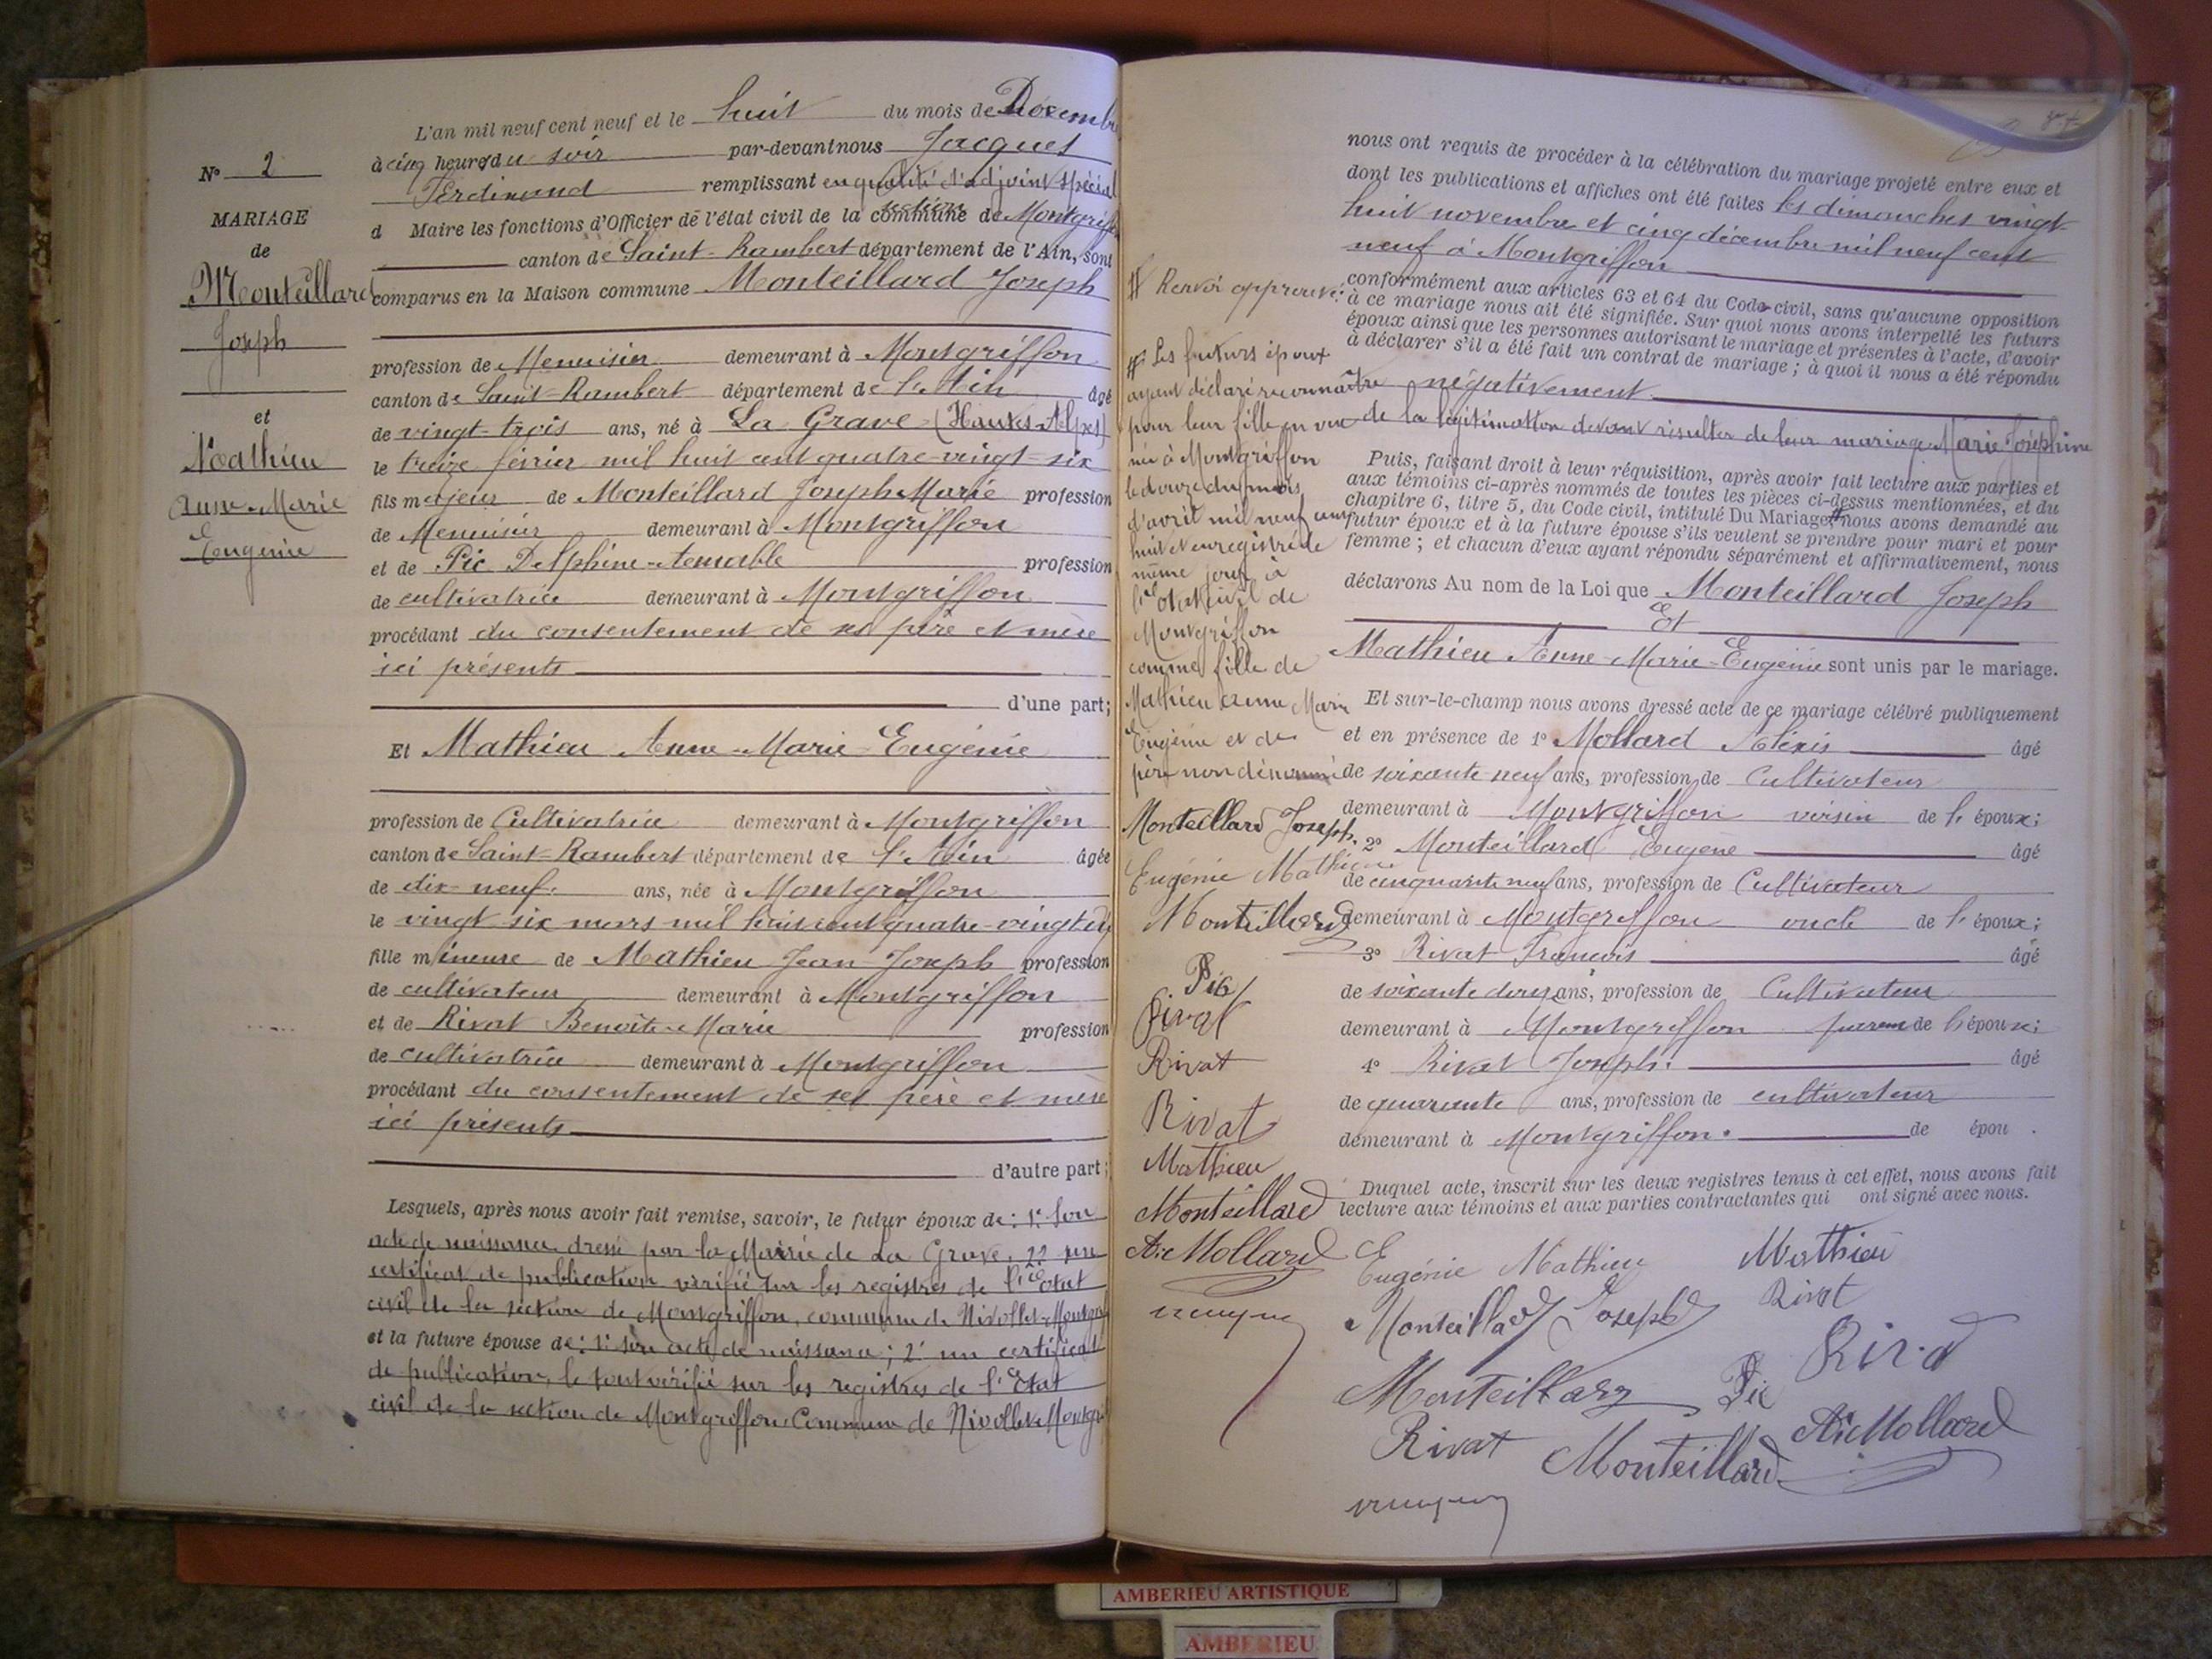 N° 2
MARIAGE
de
Monteillard
Joseph
et
Mathieu
Anne-Marie
Eugénie
L'an mil neuf cent neuf et le huit du mois de Décembre
à cinq heures du soir par-devant nous Jacques
Ferdinand remplissant en qualité d'adjoint spécial
d Maire les fonctions d'Officier de l'état civil de la commune section de Montgriffon
canton de Saint-Rambert département de l'Ain, sont
comparus en la Maison commune Monteillard Joseph
profession de Menuisier demeurant à Montgriffon
canton de Saint-Rambert département de l'Ain âgé
de vingt-trois ans, né à La Grave (Hautes-Alpes)
le treize février mil huit cent quatre-vingt-six
fils majeur de Monteillard Joseph Marie profession
de Menuisier demeurant à Montgriffon
et de Pic Delphine profession
de cultivatrice demeurant à Montgriffon
procédant du consentement de ses père et mère
ici présents
d'une part;
Et Mathieu Anne-Marie-Eugénie
profession de Cultivatrice demeurant à Montgriffon
canton de Saint-Rambert département de l'Ain âgée
de dix-neuf ans, née à Montgriffon
le vingt six mars mil huit cent quatre-vingt dix
fille mineure de Mathieu Jean-Joseph profession
de cultivateur demeurant à Montgriffon
et de Rivat Benoîte-Marie profession
de cultivatrice demeurant à Montgriffon
procédant du consentement de ses père et mère
ici présents
d'autre part;
Lesquels, après nous avoir fait remise, savoir, le futur époux de: 1° Son
acte de naissance dressé par la Mairie de La Grave, 2° un
certificat de publication vérifié sur les registres de l'Etat
civil de la section de Montgriffon, commune de Nivollet-Montgriffon
et la future épouse de: 1° son acte de naissance; 2° un certificat
de publication, le tout vérifié sur les registres de l'Etat
civil de la section de Montgriffon Commune de Nivollet-Montgriffon
nous ont requis de procéder à la célébration du mariage projeté entre eux et
dont les publications et affiches ont été faites les dimanches vingt-
huit novembre et cinq décembre mil neuf cent
neuf à Montgriffon
conformément aux articles 63 et 64 du Code civil, sans qu'aucune opposition
à ce mariage nous ait été signifiée. Sur quoi nous avons interpellé les futurs
époux ainsi que les personnes autorisant le mariage et présentes à l'acte, d'avoir
à déclarer s'il a été fait un contrat de mariage; à quoi il nous a été répondu
négativement
Puis, faisant droit à leur réquisition, après avoir fait lecture aux parties et
aux témoins ci-après nommés de toutes les pièces ci-dessus mentionnées, et du
chapitre 6, titre 5, du Code civil, intitulé Du Mariage, nous avons demandé au
futur époux et à la future épouse s'ils veulent se prendre pour mari et pour
femme; et chacun d'eux ayant répondu séparément et affirmativement, nous
déclarons Au nom de la Loi que Monteillard Joseph
Et
Mathieu Anne-Marie-Eugénie sont unis par le mariage.
Et sur-le-champ nous avons dressé acte de ce mariage célébré publiquement
et en présence de 1° Mollard Alexis âgé
de soixante neuf ans, profession de Cultivateur
demeurant à Montgriffon voisin de l'époux;
2° Monteillard Eugène âgé
de cinquante neuf ans, profession de Cultivateur
demeurant à Montgriffon oncle de l'époux;
3° Rivat François âgé
de soixante douze ans, profession de Cultivateur
demeurant à Montgriffon parent de l'épouse;
4° Rivat Joseph. âgé
de quarante ans, profession de cultivateur
demeurant à Montgriffon. de épou .
Duquel acte, inscrit sur les deux registres tenus à cet effet, nous avons fait
lecture aux témoins et aux parties contractantes qui ont signé avec nous.
Eugénie Mathieu Mathieu
Monteillard Joseph Rivat
Monteillard Pic Rivat
Rivat Monteillard A. Mollard
Renvoi approuvé:
Les futurs époux
ayant déclaré reconnaître
pour leur fille en vue de la légitimation devant résulter de leur mariage Marie Joséphine
née à Montgriffon
le douze du mois
d'avril mil neuf cent
huit et enregistrée le
même jour à
l'Etat civil de
Montgriffon
comme fille de
Mathieu Anne Marie
Eugénie et de
père non dénommé
Monteillard Joseph.
Eugénie Mathieu
Monteillard
Pic
Rivat
Rivat
Rivat
Mathieu
Monteillard
A. Mollard
AMBERIEU ARTISTIQUE
AMBERIEU